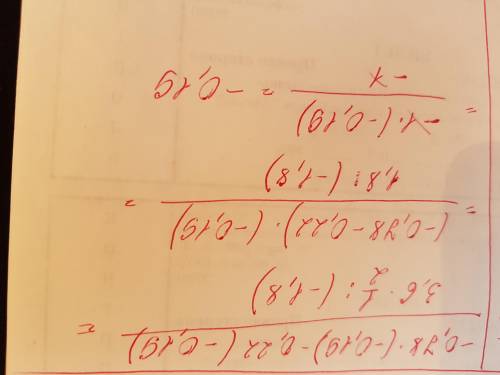 -0,78·(-0,19)-0,22(-0,19)
=
3,6·1/2:(-1,8)
= (-0,78-0,22)·(-0,19)
=
1,8:(-1,8)
= -1·(-0,19)
= -0,19
-1